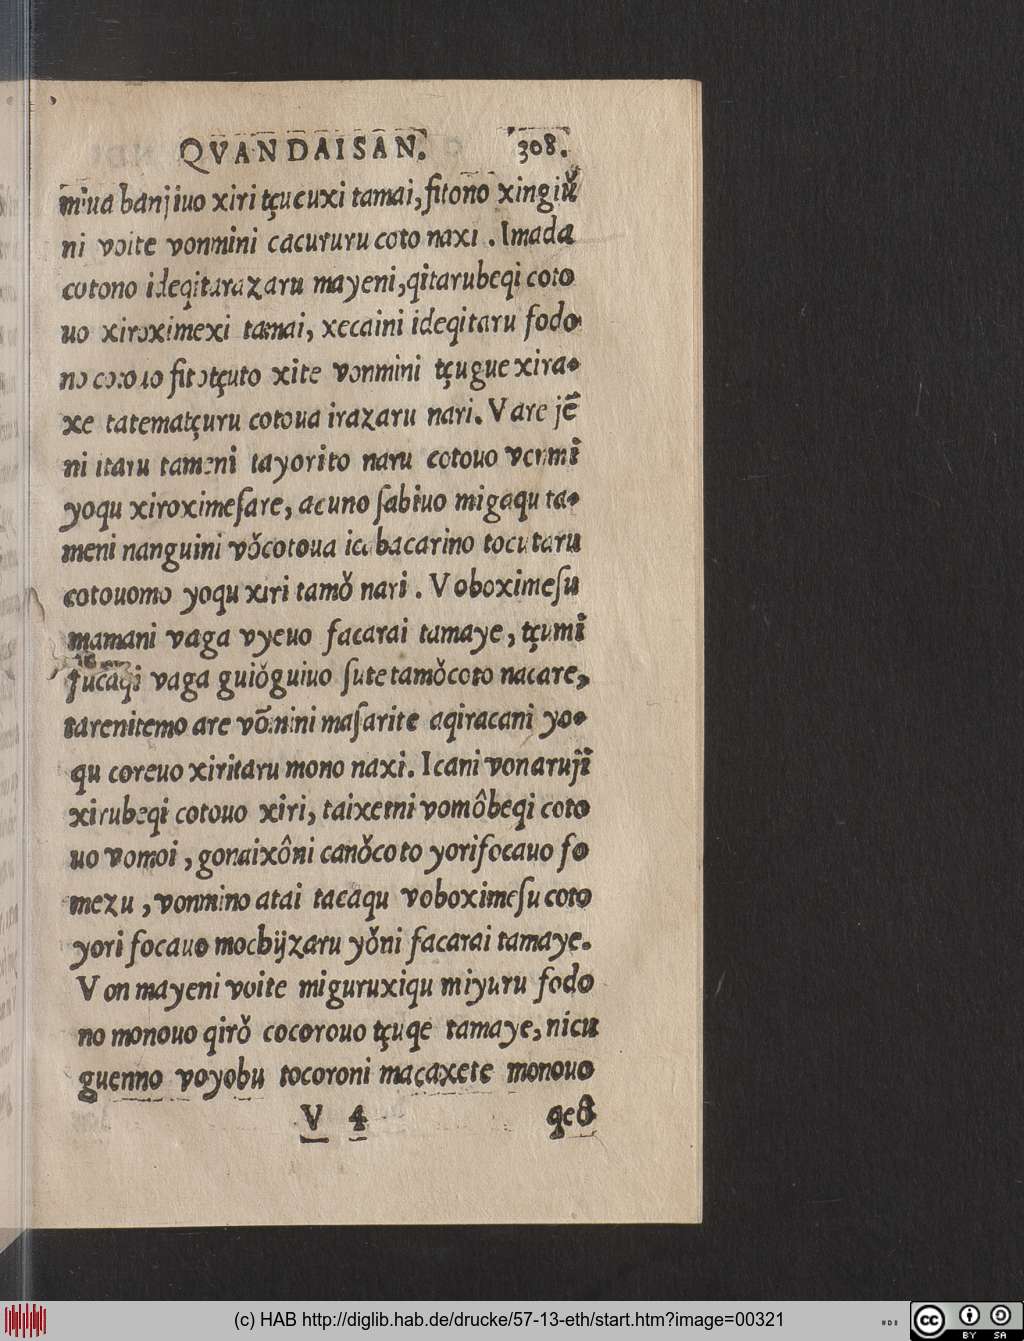 QVANDAISAN. 308.
miua banjiuo xiri tçucuxi tamai, fitono xingiǔ
ni voite vonmini cacururu coto naxi. Imada
cotono ideqitarazaru mayeni, qitarubeqi coto
uo xiroximexi tamai, xecaini ideqitaru fodo
no cotouo fitotçuto xite vonmini tçugue xira-
xe tatematçuru cotoua irazaru nari. Vare jẽ
ni itaru tameni tayorito naru cotouo vonmĩ
yoqu xiroximeſare, acuno ſabiuo migaqu ta-
meni nanguini vǒcotoua ica bacarino tocu taru
cotouomo yoqu xiri tamǒ nari. Voboximeſu
mamani vaga vyeuo facarai tamaye, tçumĩ
fucaqi vaga guiǒguiuo ſute tamǒcoto nacare,
tarenitemo are võmini maſarite aqiracani yo-
qu coreuo xiritaru mono naxi. Icani vonarujĩ
xirubeqi cotouo xiri, taixetni vomôbeqi coto
uo vomoi, gonaixôni canǒcoto yorifocauo fo
mezu, vonmino atai tacaqu voboximeſu coto
yori focauo mochijzaru yǒni facarai tamaye.
Von mayeni voite miguruxiqu miyuru fodo
no monouo qirǒ cocorouo tçuqe tamaye, nicu
guenno voyobu tocoroni macaxete monouo
V 4 qeǒ
(c) HAB http://diglib.hab.de/drucke/57-13-eth/start.htm?image=00321
cc BY SA